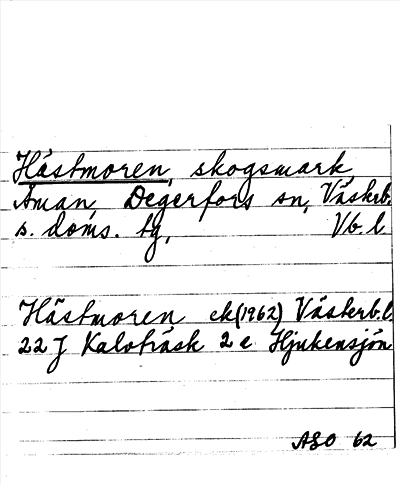 Hästmoren, skogsmark,
Åman, Degerfors sn, Västerb.
s. doms. tg, Vb. l.
Hästmoren ek (1962) Västerb. l.
22 J Kalvträsk 2 e Hjukensjön
ASO 62